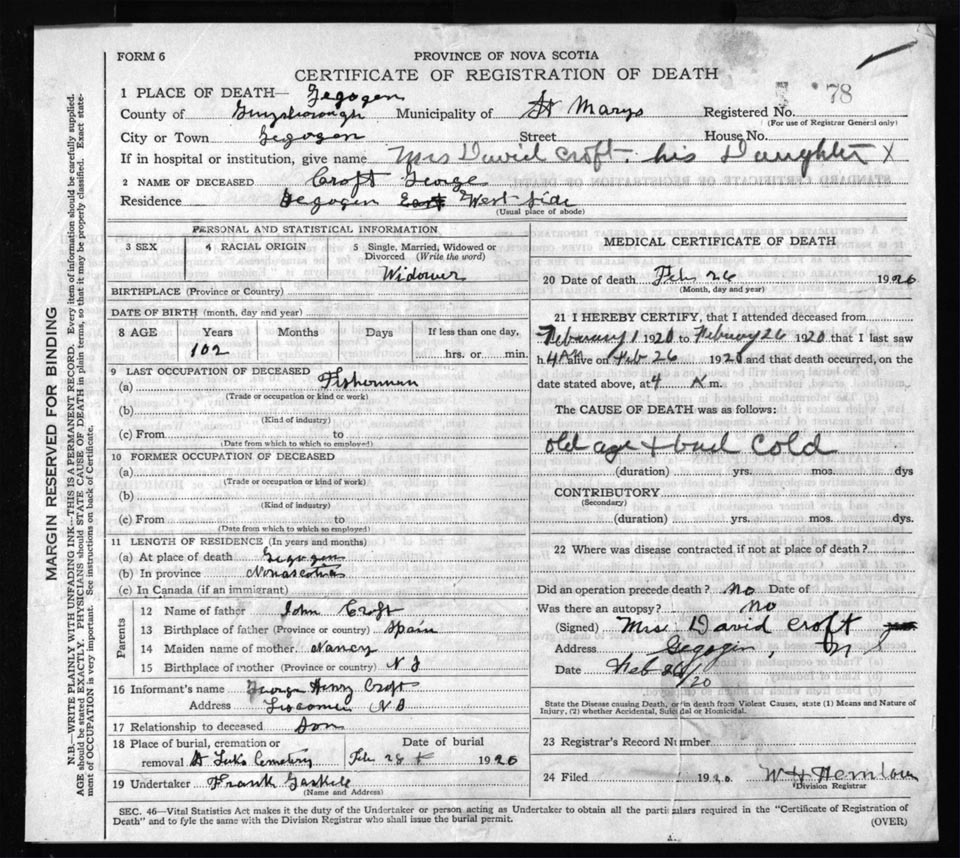 FORM 6
PROVINCE OF NOVA SCOTIA
CERTIFICATE OF REGISTRATION OF DEATH
1 PLACE OF DEATH— Gegogen
County of Guysborough Municipality of St Marys Registered No. 78
(For use of Registrar General only)
City or Town Gegogen Street House No.
If in hospital or institution, give name Mrs David Croft, his Daughter X
2 NAME OF DECEASED Croft George
Residence Gegogen East West-side
(Usual place of abode)
PERSONAL AND STATISTICAL INFORMATION
3 SEX 4 RACIAL ORIGIN 5 Single, Married, Widowed or Divorced (Write the word)
Widower
BIRTHPLACE (Province or Country)
DATE OF BIRTH (month, day and year)
8 AGE Years Months Days If less than one day,
102 hrs. or min.
9 LAST OCCUPATION OF DECEASED
(a) Fisherman
(Trade or occupation or kind or work)
(b)
(Kind of industry)
(c) From to
(Date from which to which so employed)
10 FORMER OCCUPATION OF DECEASED
(a)
(Trade or occupation or kind of work)
(b)
(Kind of industry)
(c) From to
(Date from which to which so employed)
11 LENGTH OF RESIDENCE (In years and months)
(a) At place of death Gegogen
(b) In province Novascotia
(c) In Canada (if an immigrant)
Parents
12 Name of father John Croft
13 Birthplace of father (Province or country) Spain
14 Maiden name of mother Nancy
15 Birthplace of mother (Province or country) N S
16 Informant's name George Henry Croft
Address Liscomb N.S
17 Relationship to deceased Son
18 Place of burial, cremation or Date of burial
removal St Luks Cemetery Feb 28 1920
19 Undertaker Frank
(Name and Address)
MEDICAL CERTIFICATE OF DEATH
20 Date of death Feb 26 1920
(Month, day and year)
21 I HEREBY CERTIFY, that I attended deceased from
February 1 1920 to Febuary 26 1920 that I last saw
h alive on Feb 26 1920 and that death occurred, on the
date stated above, at 4 A m.
The CAUSE OF DEATH was as follows:
old age + bad Cold
(duration) yrs. mos. dys
CONTRIBUTORY
(Secondary)
(duration) yrs. mos. dys.
22 Where was disease contracted if not at place of death?
Did an operation precede death? No Date of
Was there an autopsy? no
(Signed) Mrs David Croft
Address Gegogin,
Date Feb 26/20
State the Disease causing Death, or in death from Violent Causes, state (1) Means and Nature of
Injury, (2) whether Accidental, Suicidal or Homicidal.
23 Registrar's Record Number
24 Filed 1920. W H Hemlow
Division Registrar
SEC. 46—Vital Statistics Act makes it the duty of the Undertaker or person acting as Undertaker to obtain all the particulars required in the "Certificate of Registration of
Death" and to fyle the same with the Division Registrar who shall issue the burial permit. (OVER)
MARGIN RESERVED FOR BINDING
N.B.—WRITE PLAINLY WITH UNFADING INK—THIS IS A PERMANENT RECORD. Every item of information should be carefully supplied.
AGE should be stated EXACTLY. PHYSICIANS should STATE CAUSE OF DEATH in plain terms, so that it may be properly classified. Exact statement
of OCCUPATION is very important. See instructions on back of Certificate.